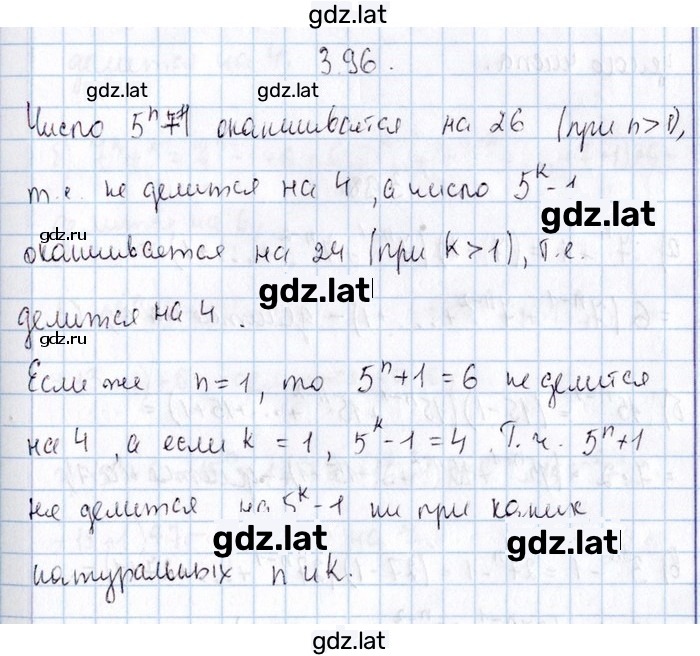 gdz.lat
3.96.
gdz.lat gdz.lat
Число 5ⁿ+1 оканчивается на 26 (при n>1),
т.е. не делится на 4, а число 5ᵏ-1
gdz.lat
gdz.ru
оканчивается на 24 (при k>1), т.е.
gdz.lat
делится на 4.
gdz.ru
Если же n=1, то 5ⁿ+1=6 не делится
на 4, а если k=1, 5ᵏ-1=4. Т.ч. 5ⁿ+1
не делится на 5ᵏ-1 ни при каких
gdz.lat gdz.lat
натуральных n и k.
gdz.lat